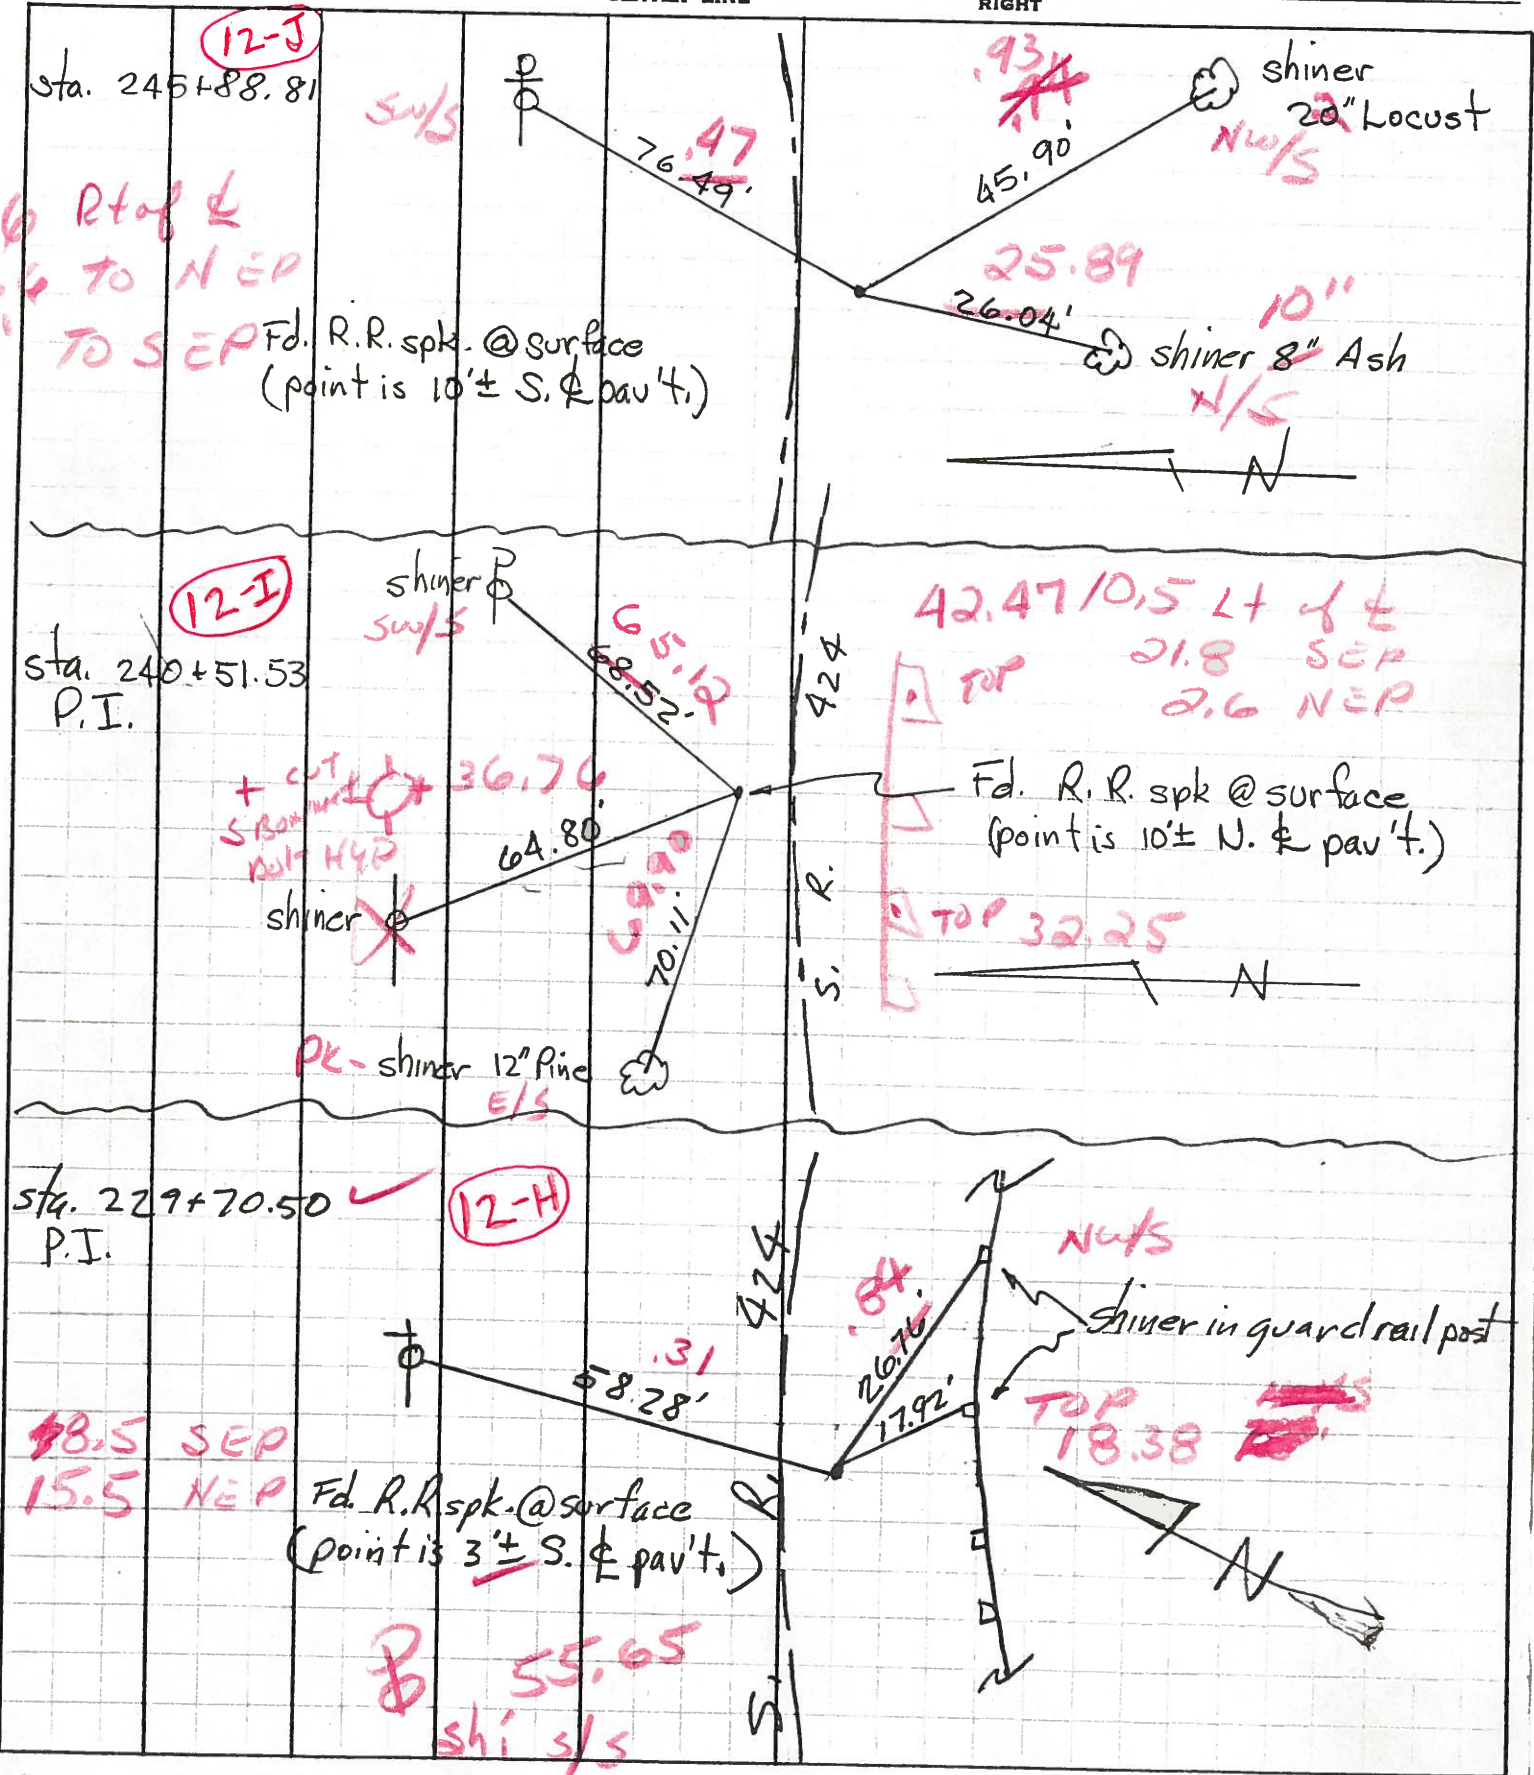 RIGHT
12-J
sta. 245+88.81
SW/S
.47
76.49'
.93
45.90'
shiner
20" Locust
NW/S
Rt of ℄
TO NEP
TO SEP
25.89
26.04'
10"
shiner 8" Ash
N/S
Fd. R.R. spk. @ surface
(point is 10'± S. ℄ pav't.)
N
12-I
sta. 240+51.53
P.I.
shiner
SW/S
68.52'
42.47/0.5 Lt of ℄
21.8 SEP
2.6 NEP
TOP
S. R. 424
+ cut
36.76
64.80'
shiner
70.11'
Fd. R.R. spk @ surface
(point is 10'± N. ℄ pav't.)
TOP 32.25
N
PK - shiner 12" Pine
E/S
12-H
sta. 229+70.50
P.I.
S. R. 424
.31
58.28'
26.76'
17.92'
NW/S
shiner in guard rail post
TOP
18.38
18.5 SEP
15.5 NEP
Fd. R.R. spk. @ surface
(point is 3'± S. ℄ pav't.)
N
55.65
shi s/s